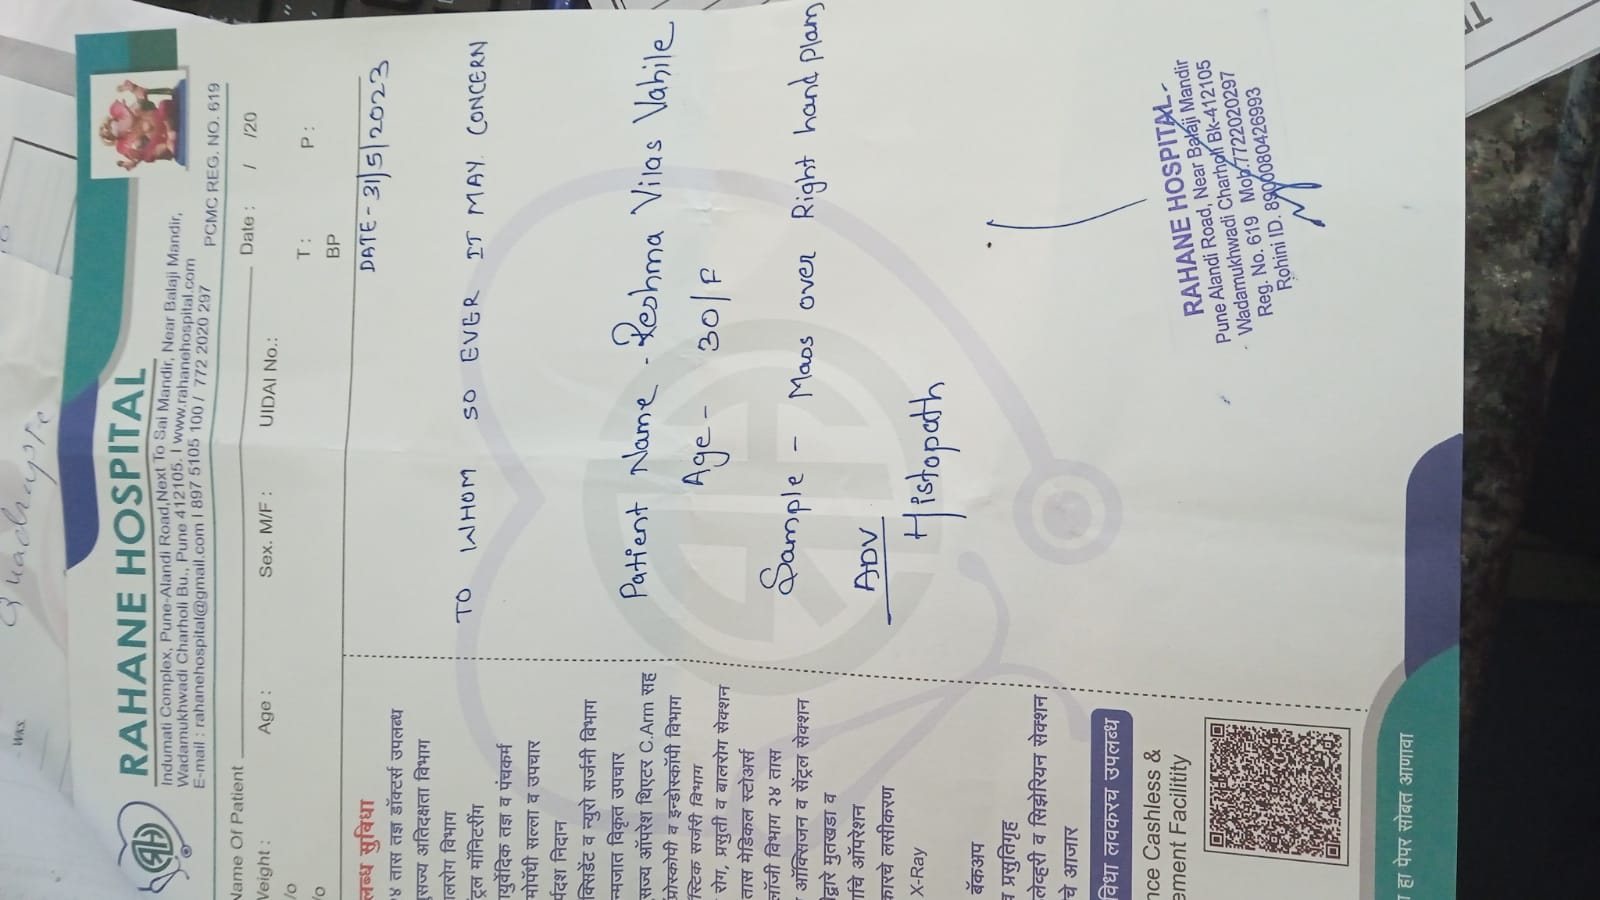 RAHANE HOSPITAL
Indumati Complex, Pune-Alandi Road,Next To Sai Mandir, Near Balaji Mandir,
Wadamukhwadi Charholi Bu., Pune 412105. I www.rahanehospital.com
E-mail : rahanehospital@gmail.com I 897 5105 100 / 772 2020 297
PCMC REG. NO. 619
Name Of Patient
Date : / /20
Weight :
Age :
Sex. M/F :
UIDAI No.:
T :
P :
BP
DATE - 31/5/2023
TO WHOM SO EVER IT MAY CONCERN
Patient Name - Reshma Vilas Vahile
Age - 30/F
Sample - Mass over Right hand plam
ADV
Histopath
RAHANE HOSPITAL
Pune Alandi Road, Near Balaji Mandir
Wadamukhwadi Charholi Bk-412105
Reg. No. 619 Mob.7722020297
Rohini ID. 8900080426993
लब्ध सुविधा
४ तास तज्ञ डॉक्टर्स उपलब्ध
सुसज्य अतिदक्षता विभाग
ालरोग विभाग
ट्रल मॉनिटरींग
ायुर्वेदिक तज्ञ व पंचकर्म
मोपॅथी सल्ला व उपचार
र्पदश निदान
क्सिडेंट व न्युरो सर्जनी विभाग
न्मजात विकृत उपचार
सज्य ऑपरेश थिएटर C.Arm सह
प्रोस्कोपी व इन्डोस्कॉपी विभाग
स्टिक सर्जरी विभाग
रोग, प्रसुती व बालरोग सेक्शन
तास मेडिकल स्टोअर्स
लॉजी विभाग २४ तास
ऑक्सिजन व सेंट्रल सेक्शन
द्वारे मुतखडा व
चे ऑपरेशन
कारचे लसीकरण
X-Ray
बॅकअप
प्रसुतिगृह
लेव्हरी व सिझेरियन सेक्शन
चे आजार
विधा लवकरच उपलब्ध
nce Cashless &
ement Facilitity
हा पेपर सोबत आणावा